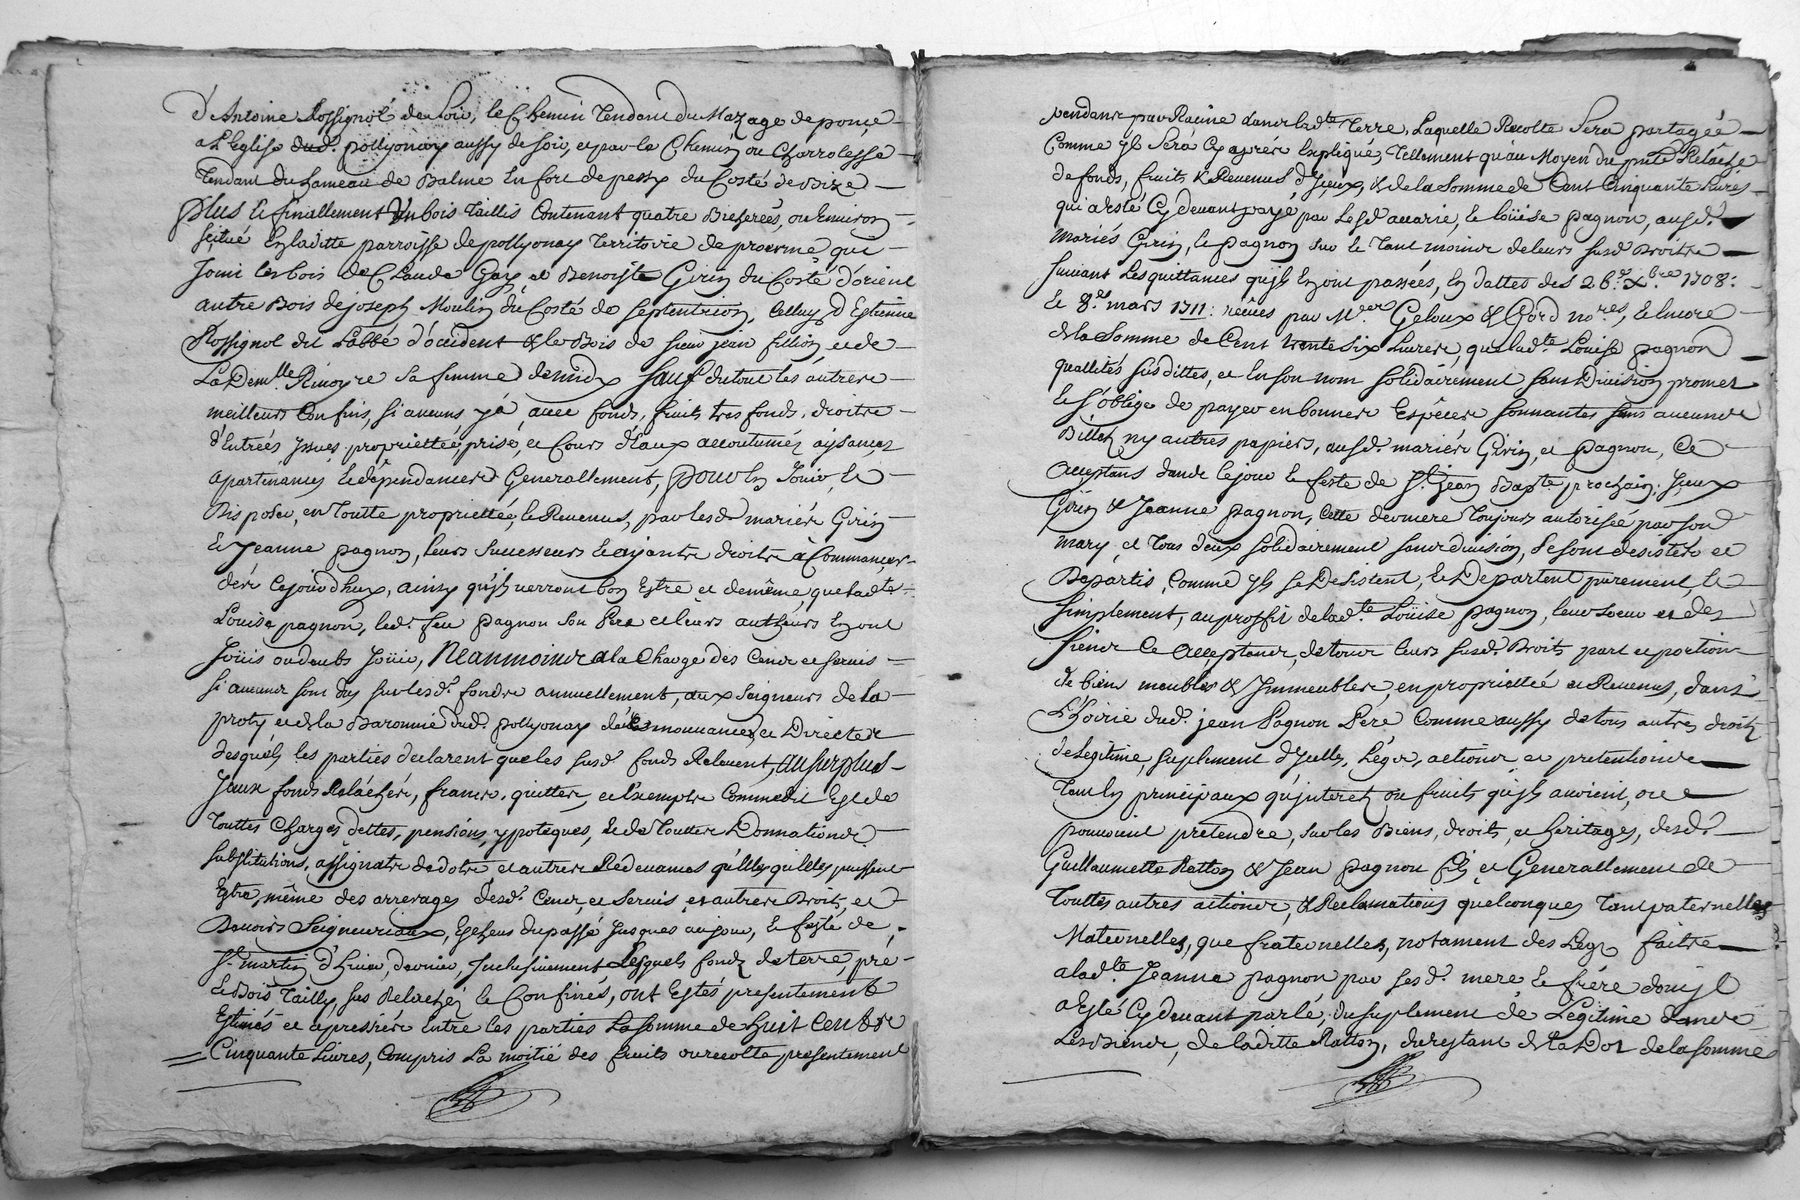 d'Antoine Rossignol de soir, le Chemin Tendant du Mazage de ponce
a l'Eglise dud. pollyonay aussy de soir, et par le Chemin ou Charrolesse
Tendant du hameau de Balme En forc de pessy du Costé de Bize
plus et finallement Un bois Taillis Contenant quatre Bicherées, ou Environ
scitué En laditte parroisse de pollyonay Territoire de proerme qui
Joint les bois de Claude Gay et Benoiste Girin du Costé d'orient
autre Bois de joseph Moulin du Costé de septentrion, Celluy d'Estienne
Rossignol dit Labbé d'occident & le Bois de sieur jean fillion et de
La Dem.lle Rimoyre sa femme de midy sauf du tout les autres
meilleurs Confins, si aucuns y a, avec fonds, fruits, tres fonds, droits
d'Entrées, yssues, proprietté, prise, et Cours d'Eaux accoutumés, aysances
apartenances et dependances Generallement, pour En Jouir, et
Disposer, en Toutte proprietté, et Revenus, par lesd. mariés Girin
Et Jeanne pagnon, leurs successeurs et ayants droits à Commancer
dès Cejourd'huy, ainsy qu'ils verront bon Estre et de même que lad.te
Louise pagnon, led. feu pagnon son Pere et leurs autheurs En ont
Joüis ou deubs Joüir, Neanmoins a la Charge des Cens et servis
si aucuns sont dus sur lesd. fonds annuellement, aux seigneurs de la
proty et de la Baronnie dud. pollyonay de les mouvances et Directes
desquels les parties declarent que les susd. fonds Relevent, au surplus
Iceux fonds Relâchés, francs, quittes, et Exempts Comme dit Est de
Touttes Charges dettes, pensions, ypoteques, et de Touttes Donnations
substitutions, assignats de dots et autres Redevances qu'elles qu'elles puissent
Estre, même des arrerages desd. Cens, et servis et autres Droits et
Devoirs Seigneuriaux, Echeus du passé Jusques au jour, et feste de
S.t martin d'hiver, dernier, Inclusivement Lesquels fonds de terre, pré
et Bois Tailly, sus Relachez et Confinés, ont Estés presentement
Estimés et apressiés Entre les parties La somme de huit Cents
Cinquante Livres, Compris La moitié des fruits ou recolte presentement
pendans par Racine dans lad.te Terre, Laquelle Recolte sera partagée
Comme yl sera Cy aprés Expliqué, Tellement qu'au Moyen du pnt Relâche
de fonds, fruits & Revenus d'Iceux, & de la somme de Cent Cinquante livres
qui a Esté Cy devant payé par Led. avarie, et loüise pagnon, ausd.
Mariés Girin, et pagnon sur et Tant moins de leurs susd. Droits
suivant Les quittances qu'ils En ont passées, En dattes des 26.e Xbre 1708:
Et 8.e mars 1711: reçües par M.ers Geloux & Gord no.res, et Encore
de la somme de Cent trente six Livres, que lad.te Louise pagnon
quallités susdittes, et En son nom solidairement sans Division promet
Et s'oblige de payer en bonnes Espéces sonnantes sans aucuns
Billets ny autres papiers, ausd. mariés Girin, et pagnon, Ce
acceptans dans le jour et feste de S.t Jean Bapt.te prochain. Iceux
Girin & Jeanne pagnon, Cette derniere Toujours autorisée par son
mary, et Tous deux solidairement sans division, se sont desistés et
Départis, Comme yls se Desistent, et Departent purement, et
simplement, au proffit de lad.te Loüise pagnon, leur soeur et des
siens Ce acceptans, de tous leurs susd. Droits part et portions
de biens meubles & Immeubles, en proprietté et Revenus, dans
L'hoirie dud. jean Pagnon Pere Comme aussy de tous autres droits
de Legitime, suplement d'Icelle, Légs, actions et pretentions
Tant En principaux qu'interets ou fruits qu'ils avoient, ou
pouvoient pretendre, sur les Biens, droits, et heritages, desd.
Guillaumette Ratton & Jean pagnon fils et Generallement de
Touttes autres actions, & Reclamations quelconques Tant paternelles
Maternelles, que fraternelles, notament des Legs faits
a lad.te Jeanne pagnon par sesd. mere, et frére dont yl
a Esté Cy devant parlé, du suplement de Legitime dans
Les Biens, de laditte Ratton, du restant de la Dot de la somme